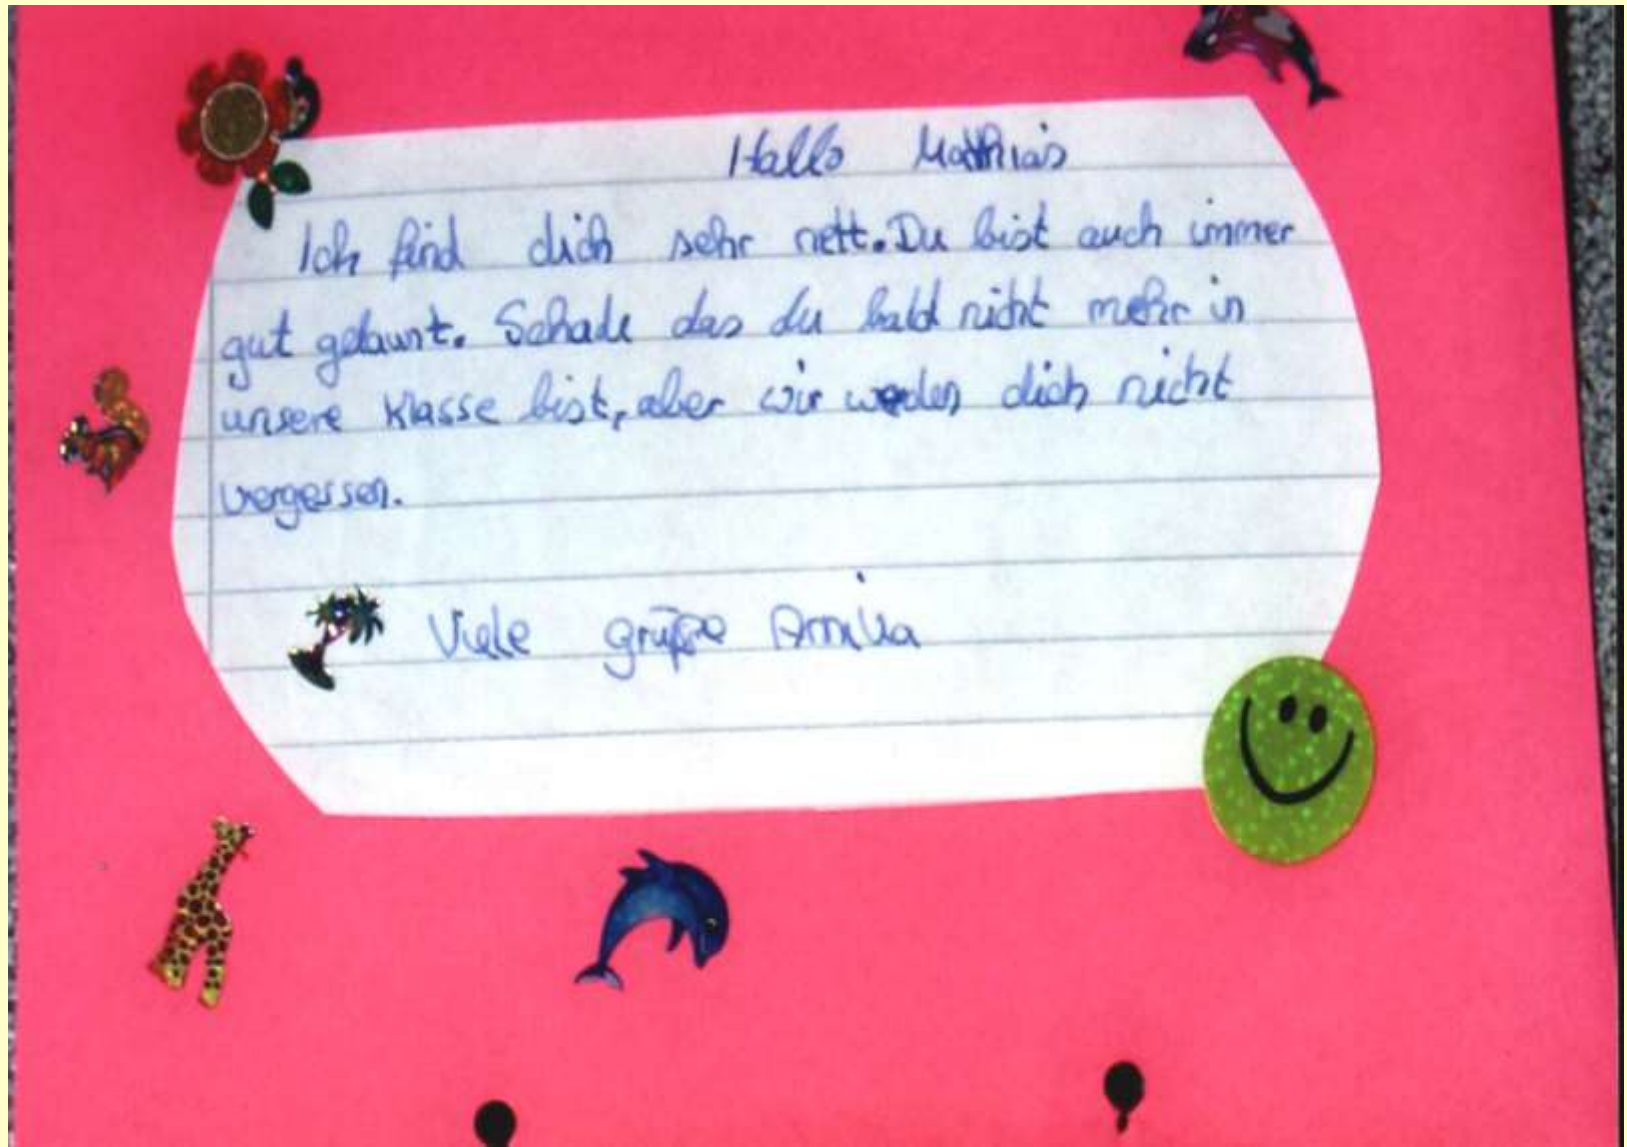 Hallo Matthias
Ich find dich sehr nett. Du bist auch immer
gut gelaunt. Schade das du bald nicht mehr in
unsere Klasse bist, aber wir werden dich nicht
vergessen.
Viele grüße Annika